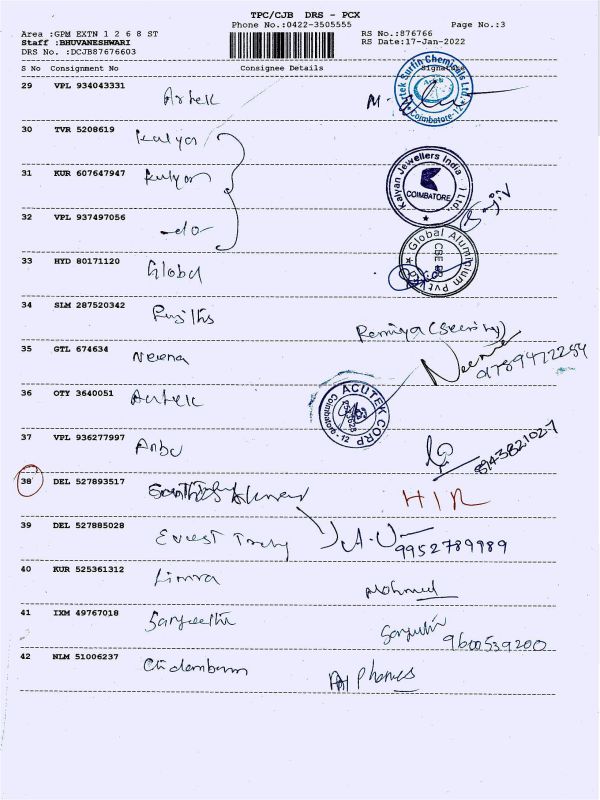 TPC/CJB DRS - PCX
Phone No.:0422-3505555 Page No.:3
Area :GPM EXTN 1 2 6 8 ST RS No.:876766
Staff :BHUVANESHWARI RS Date:17-Jan-2022
DRS No. :DCJB87676603
S No Consignment No Consignee Details Signature
29 VPL 934043331 Artek
Artek Surfin Chemicals Ltd. Coimbatore-12
30 TVR 5208619 Kalyan
31 KUR 607647947 Kalyan
Kalyan Jewellers India Ltd. COIMBATORE
32 VPL 937497056 -do-
33 HYD 80171120 Global
Global Aluminium Pvt
34 SLM 287520342
Remiya (Security)
35 GTL 674634 Neena
36 OTY 3640051
ACUTEK CORP Coimbatore-12
37 VPL 936277997 Anbu
38 DEL 527893517
39 DEL 527885028 Everest
9952789989
40 KUR 525361312 Limra
Mohmed
41 IXM 49767018 Sanjeethi
9600539200
42 NLM 51006237 Chidambaram
Phones